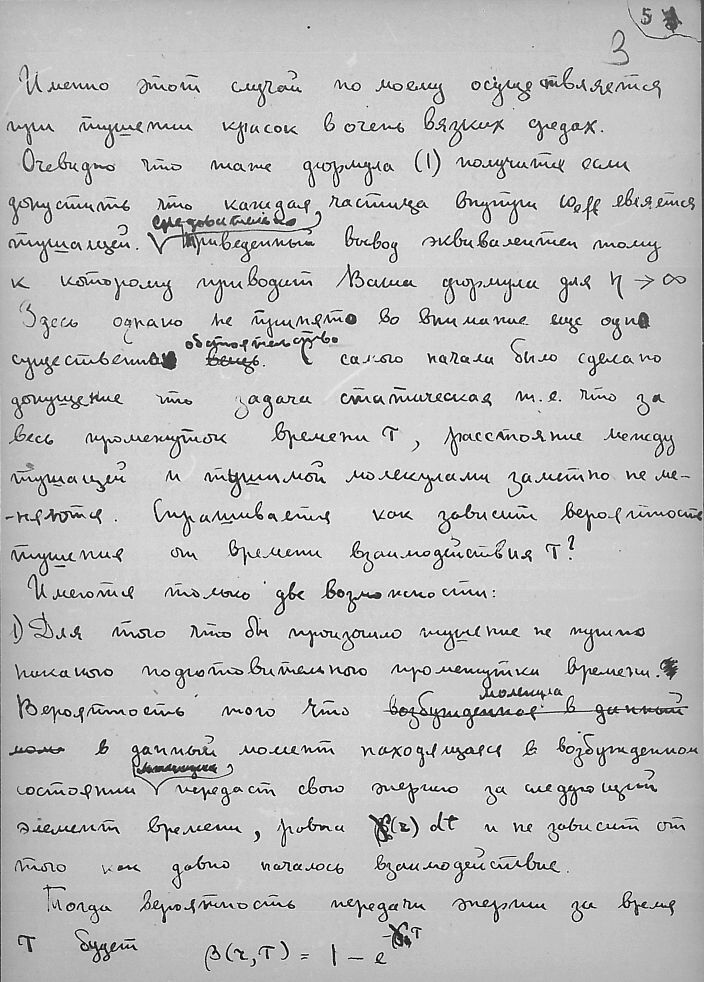 5
3
Именно этот случай по моему осуществляется
при тушении красок в очень вязких средах.
Очевидно что таже формула (1) получится если
допустить что каждая частица внутри ω_eff является
следовательно
тушащей. Приведенный вывод эквивалентен тому
к которому приводит Ваша формула для η → ∞
Здесь однако не принято во внимание еще одно
обстоятельство
существенное вещь. С самого начала было сделано
допущение что задача статическая т.е. что за
весь промежуток времени T, расстояние между
тушащей и тушимой молекулами заметно не ме-
-няются. Спрашивается как зависит вероятность
тушения от времени взаимодействия T?
Имеются только две возможности:
1) Для того что бы произошло тушение не нужно
никакого подготовительного промежутка времени.
молекула
Вероятность того что возбужденная в данный
в данный момент находящаяся в возбужденном
состоянии передаст свою энергию за следующий
элемент времени, равна (r) dt и не зависит от
того как давно началось взаимодействие.
Тогда вероятность передачи энергии за время
T будет β(r,T) = 1 − e